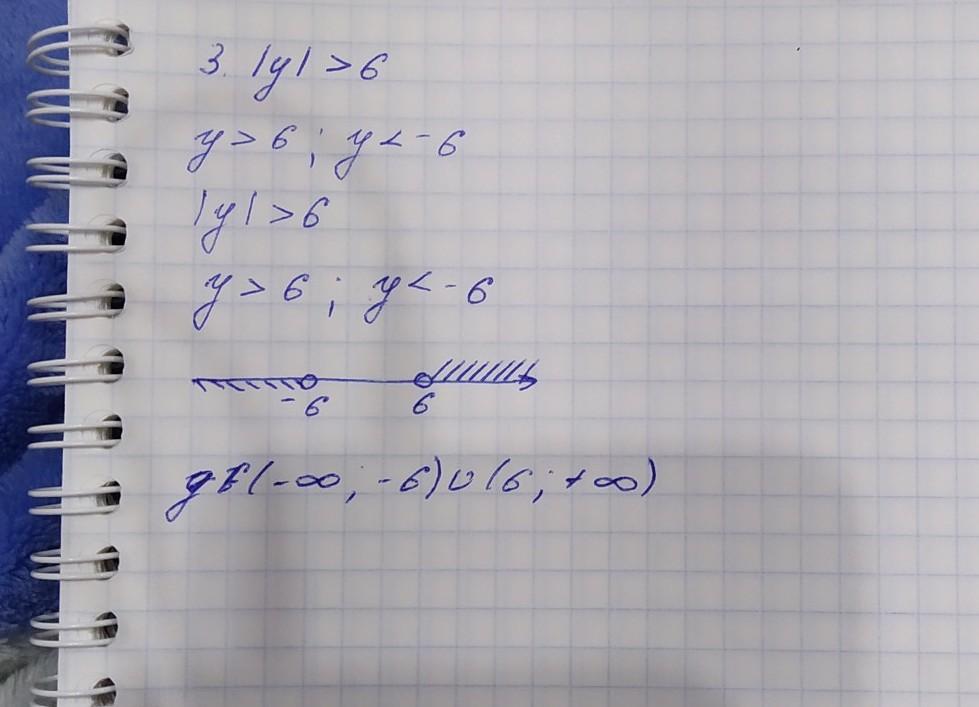 3. |y| > 6
y > 6 ; y < -6
|y| > 6
y > 6 ; y < -6
-6 6
y ∈ (-∞; -6) ∪ (6; +∞)